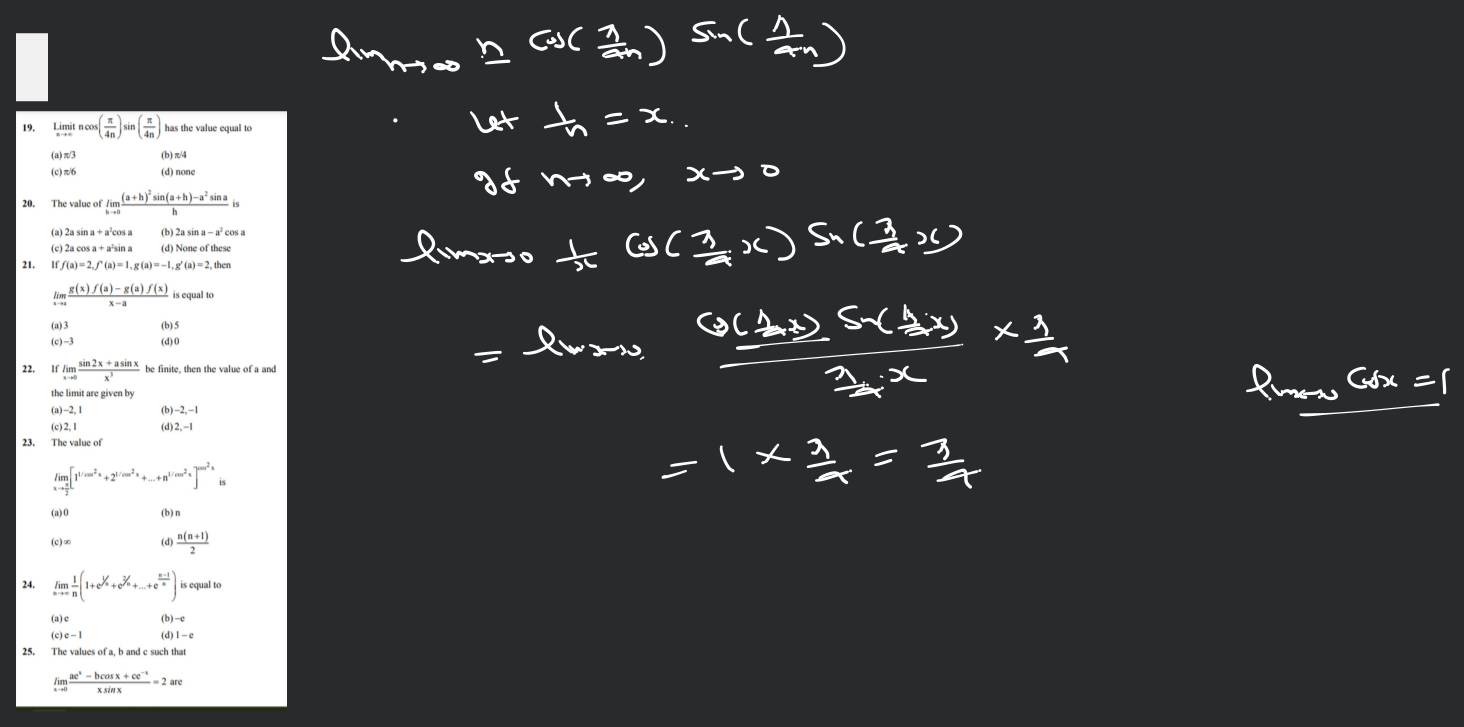 19. Limit n→∞ n cos(π/4n) sin(π/4n) has the value equal to
(a) π/3 (b) π/4
(c) π/6 (d) none
20. The value of lim h→0 ((a+h)² sin(a+h) − a² sin a)/h is
(a) 2a sin a + a² cos a (b) 2a sin a − a² cos a
(c) 2a cos a + a² sin a (d) None of these
21. If f(a) = 2, f'(a) = 1, g(a) = −1, g'(a) = 2, then
lim x→a (g(x) f(a) − g(a) f(x))/(x − a) is equal to
(a) 3 (b) 5
(c) −3 (d) 0
22. If lim x→0 (sin 2x + a sin x)/x³ be finite, then the value of a and
the limit are given by
(a) −2, 1 (b) −2, −1
(c) 2, 1 (d) 2, −1
23. The value of
lim x→π/2 [1^(1/cos² x) + 2^(1/cos² x) + ... + n^(1/cos² x)]^(cos² x) is
(a) 0 (b) n
(c) ∞ (d) n(n+1)/2
24. lim n→∞ 1/n (1 + e^(1/n) + e^(2/n) + ... + e^((n−1)/n)) is equal to
(a) e (b) −e
(c) e − 1 (d) 1 − e
25. The values of a, b and c such that
lim x→0 (ae^x − b cos x + ce^(−x))/(x sin x) = 2 are
lim n→∞ n cos(π/4n) sin(π/4n)
Let 1/n = x..
If n→∞, x→0
lim x→0 1/x cos(π/4 x) sin(π/4 x)
= lim x→0 (cos(π/4 x) sin(π/4 x))/(π/4 x) × π/4
= 1 × π/4 = π/4
lim x→0 cosx = 1